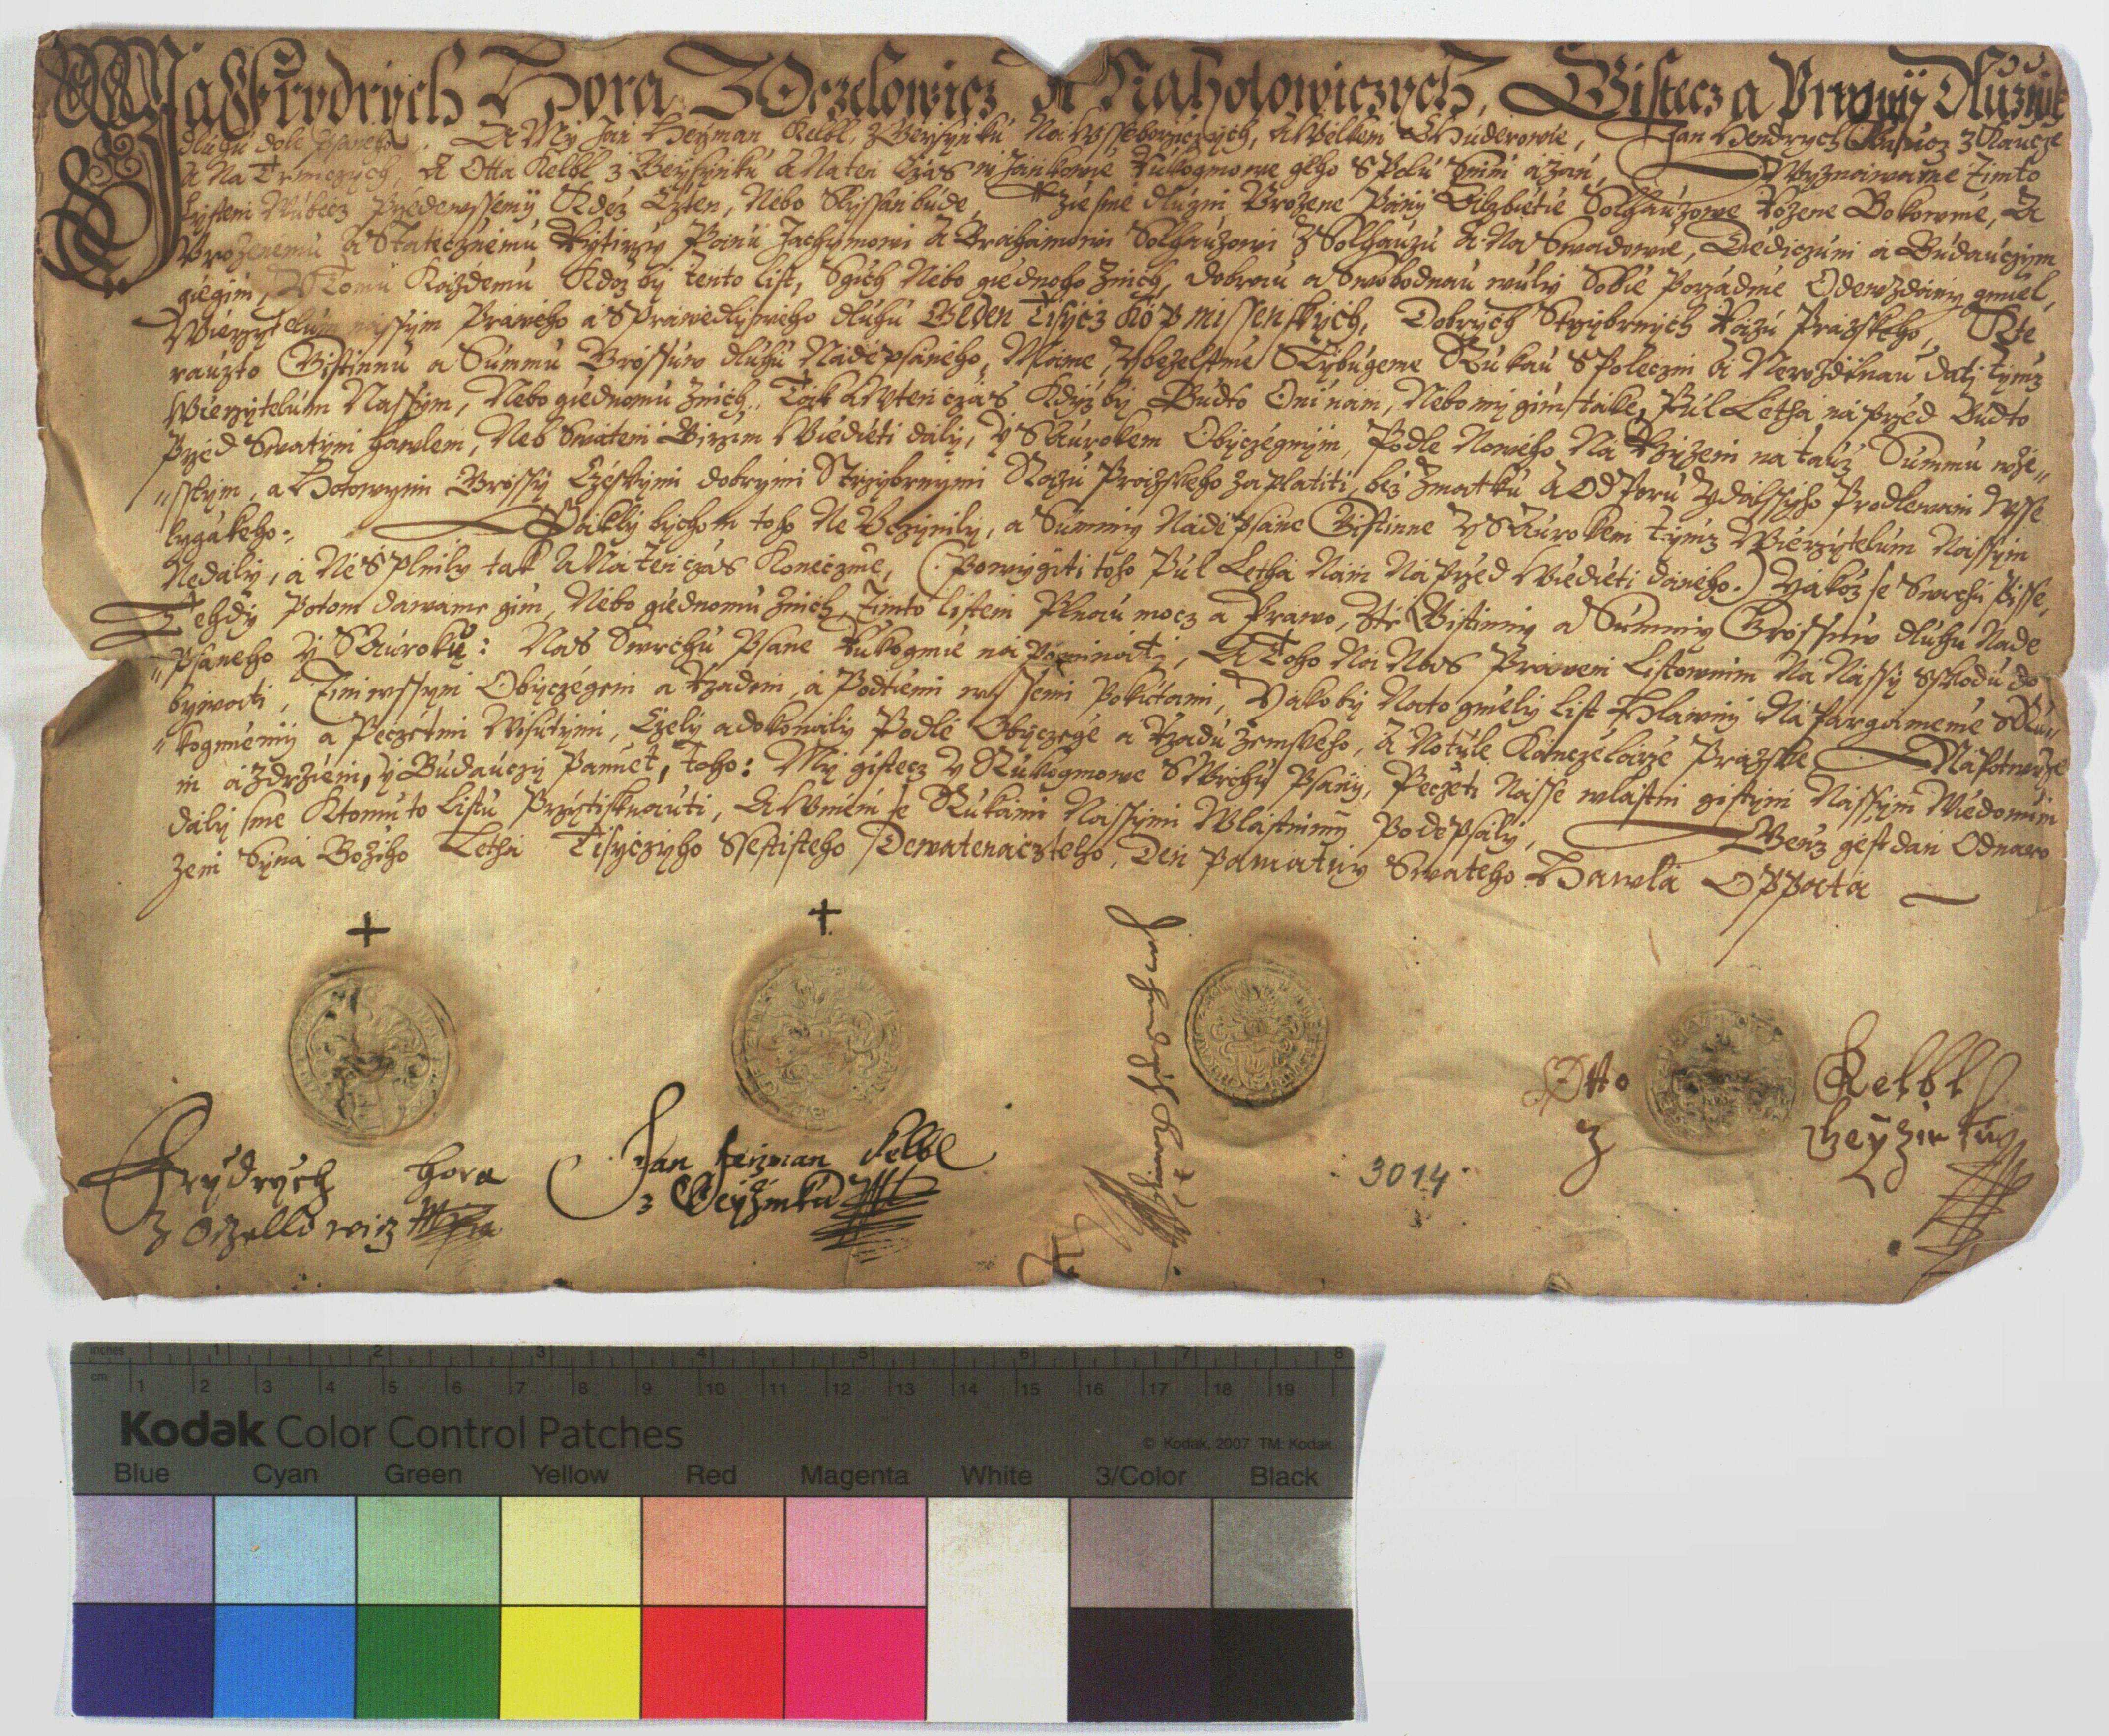 Ja Frydrych Hora Z Oczelowicz A Na Holowiczych, Gistecz a Prwnij Dlužnik
dluhu dole psaneho. A My Jan Heyman Kelbl, z Geysynku Na Wsseboržiczych, A Welkem Chuderowie, Jan Hendrych Kaucz z Kaucze
A Na Trmiczych, A Otta Kelbl z Geysynku A Na ten Czas w Jankowie Rukogmowe geho Spolu s nim a zan, Wyznawame timto
Lystem Wubecz Przedewssemij Kdež Czten, Nebo Slyssan bude, Zie sme dlužni Urozene Pany Eilzbietie Solhauzowe Rozene Bokowme, A
Urozenemu a Statecznemu Rytirzy Panu Jachymowi A Brahamowi Solhauzowi z Solhauzu A Na Swadowie, Diediczum a Budauczym
giegim, Y Tomu Kazdemu Kdoz by tento list, S gich Nebo giednoho z nich, dobrau a Swobodnau wuly Sobie Porzadnie Odewzdany gmiel,
Wierzytelum nassym Praweho a Sprawedlyweho dluhu Geden Tisycz Kop missenskych, Dobrych Strzybrnych Razu Prazskeho, Kte
rauzto Gistinnu a Summu Grossuw dluhu Nadepsaneho, Mame, Y bezelstnie Slybugeme Rukau Spoleczni A Nerozdilnau dati tymz
Wierzytelum Nassym, Nebo giednomu z nich. Tak A w ten czas Kdyz by Budto Oni nam, Nebo my gim take, Pul Letha na przed Budto
Przed Swatym Hawlem, Neb Swatem Girzim Wiedieti daly, Y S Aurokem Obyczegnym, Podle Noweho Na Rzizeni na tauz Summu wsse
sskym, a Hotowymi Grossy Czeskymi dobrymi Strzybrnymi Razu Prazskeho zaplatiti, bez Zmatku A Odporu y dalssyho Prodlewani Wsse
lygakeho. Paklybychom toho Ne Uczynily, a Summy Nadepsane Gistinne Y S Aurokem tymz Wierzytelum Nassym
Nedaly, a Nesplnily tak A Na ten czas Konecznie, (Pomygiti toho Pul Letha Nam Na przed Wiedieti daneho.) Yakoz se Swrchu Pisse,
Tehdy Potom dawame gim, Nebo giednomu z nich, Timto listem Plnau mocz a Prawo, Z te Gistinny a Summy Grossuw dluhu Nade
psaneho Y S Auroku: Nas Swrchu Psane Rukogmie na pominati, A Toho Na Nas Prawem Listownim Na Nassy Sskodu do
bywati, Tim wssym Obyczegem a Rzadem, a Podtiemi wssemi Pokutami, Yakoby Na to gmiely list Hlawny Na Pargamenie S Ru
kogmiemij a Peczetmi Wisutymi, Czely a dokonaly Podle Obyczege a Rzadu Zemskeho, A Notule Kanczelarze Prazske. Na Potwrze
ni a Zdrzieni, y Budauczy Pamiet, toho: My gistecz y Rukogmowe Swrchu Psany, Peczeti Nasse wlastni gistym Nassym Wiedomim
daly sme K tomuto Listu Przytisknauti, A w Umeni se Rukami Nassymi Wlastnimij Podepsaly, Genz gest dan Od naro
zeni Syna Boziho Letha Tisyczyho Ssestisteho Dewatenacteho, Den Pamatny Swateho Hawla Oppata
Frydrych Hora
z Oczellowicz
Jan Heyman Kelbl
z Geyžinku
Jan Hendrych Kaucz
Otto Kelbl
z Gheyžinku
3014
inches 1 2 3 4 5 6 7 8
cm 1 2 3 4 5 6 7 8 9 10 11 12 13 14 15 16 17 18 19
Kodak Color Control Patches
© Kodak, 2007 TM: Kodak
Blue Cyan Green Yellow Red Magenta White 3/Color Black